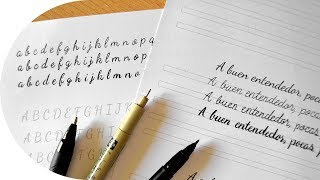 abcdefghijklmnop
abcdefghijklmnop
abcdefghijklmnop
ABCDEFGH
ABCDEFG
ABCDE
ABCD
A buen entendedor, pocas
A buen entendedor, pocas
A buen entendedor, pocas
A buen entendedor, pocas p
A buen
A buen